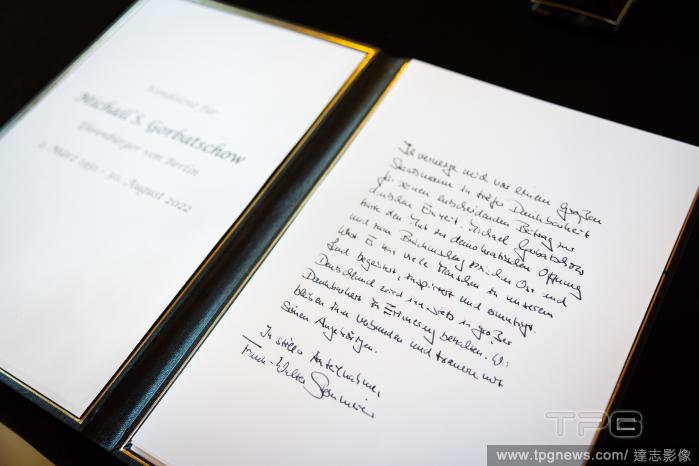 Kondolenz für
Michail S. Gorbatschow
Ehrenbürger von Berlin
2. März 1931 - 30. August 2022
Ich verneige mich vor einem großen
Staatsmann in tiefer Dankbarkeit
für seinen entscheidenden Beitrag zur
deutschen Einheit. Michael Gorbatschow
hatte den Mut zu demokratischen Öffnung
und zum Brückenschlag zwischen Ost und
West. Er hat viele Menschen in unserem
Land begeistert, inspiriert und ermutigt.
Deutschland wird ihn stets in großer
Dankbarkeit in Erinnerung behalten. Wir
bleiben ihm verbunden und trauern mit
seinen Angehörigen.
In stiller Anteilnahme,
Frank-Walter Steinmeier
TPG
www.tpgnews.com/ 達志影像